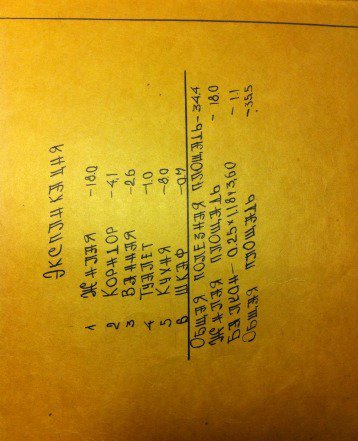 ЭКСПЛИКАЦИЯ
1 ЖИЛАЯ -18.0
2 КОРИДОР -4,1
3 ВАННАЯ -2.6
4 ТУАЛЕТ -1.0
5 КУХНЯ -8.0
6 ШКАФ -0,7
ОБЩАЯ ПОЛЕЗНАЯ ПЛОЩАДЬ-34,4
ЖИЛАЯ ПЛОЩАДЬ - 18.0
БАЛКОН-0.25×1,18×3,60 - 1.1
ОБЩАЯ ПЛОЩАДЬ -35,5